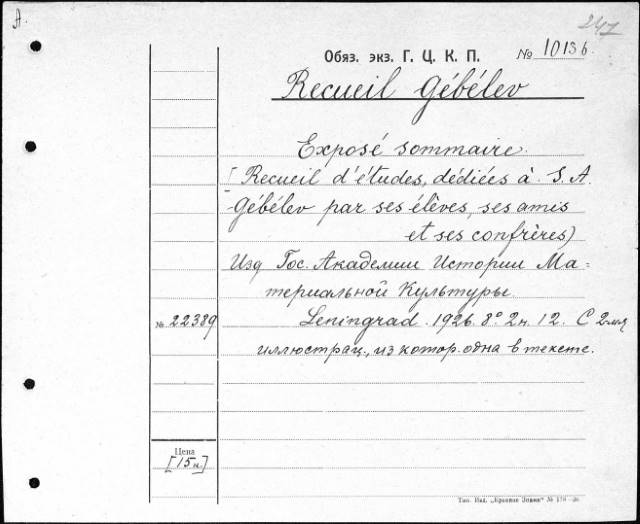 А.
247
Обяз. экз. Г. Ц. К. П. № 10136.
Recueil Gébélev
Exposé sommaire.
[Recueil d'études, dédiées à S. A.
Gébélev par ses élèves, ses amis
et ses confrères)
Изд Гос. Академии Истории Ма-
териальной Культуры.
№ 22389
Leningrad. 1926. 8° 2н. 12. С 2мя
иллюстрац., из котор. одна в тексте.
Цена
[15к]
Тип. Изд. „Красное Знамя" №